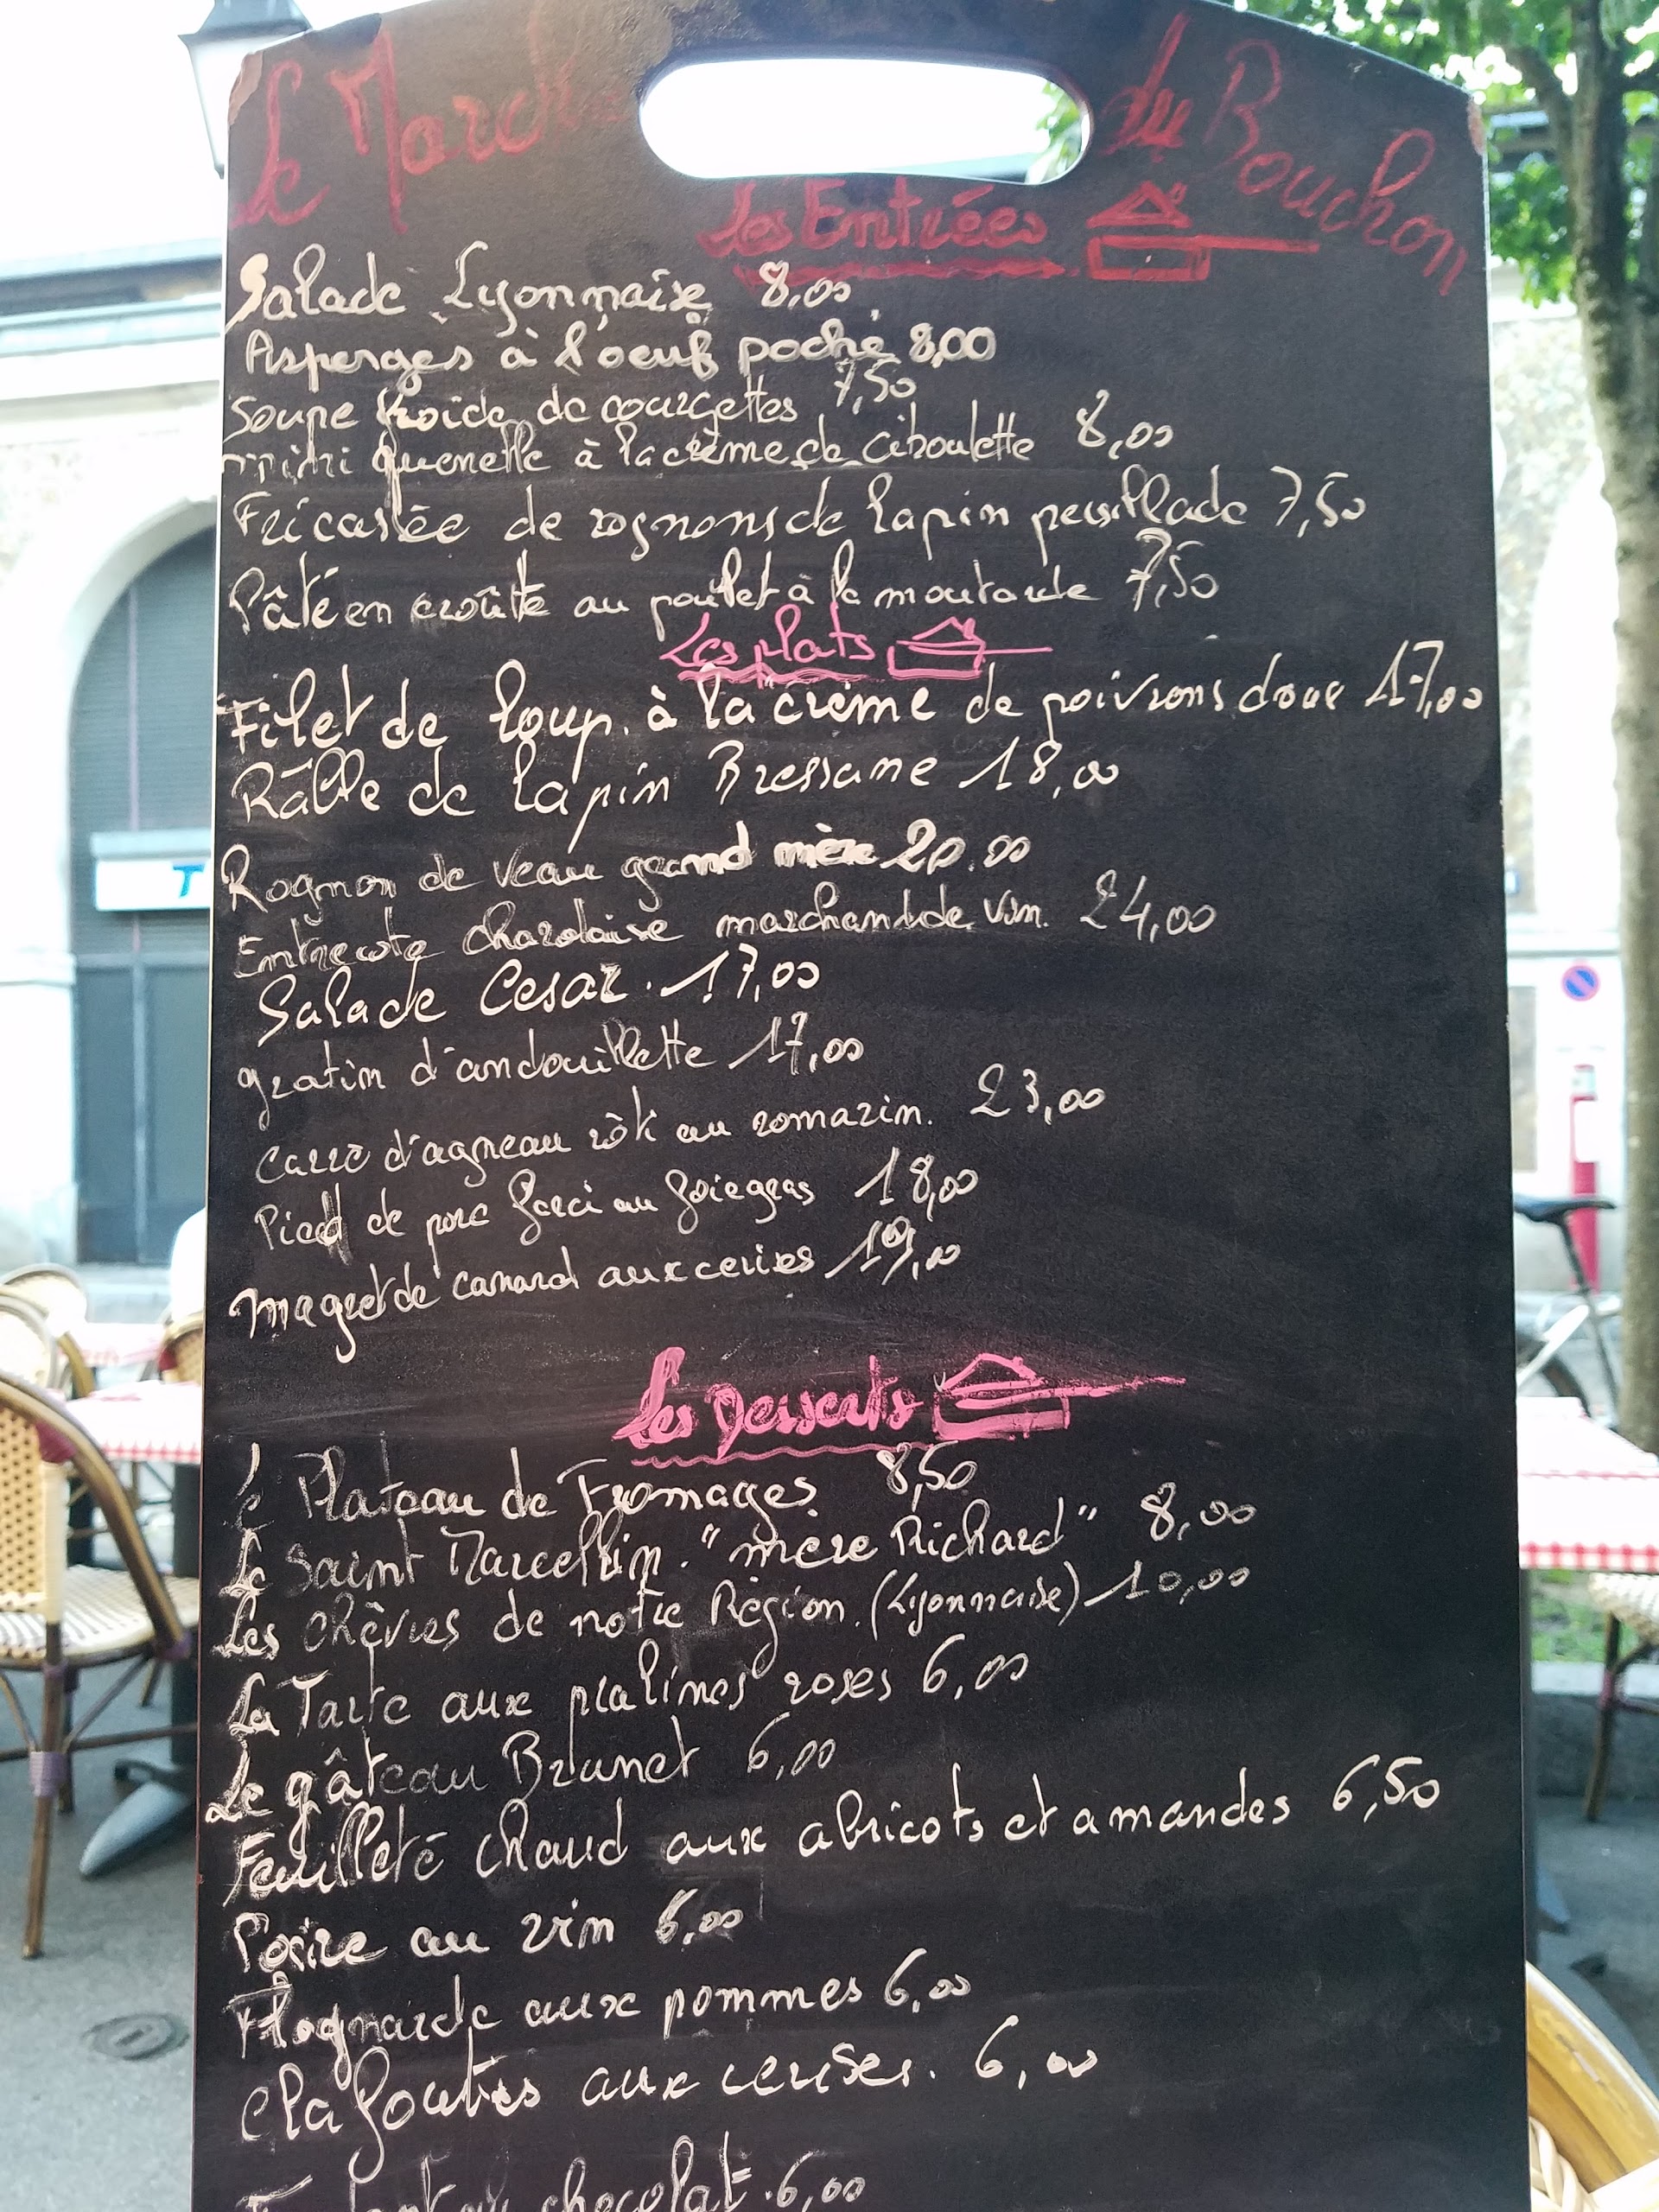 Le Marché du Bouchon
Les Entrées
Salade Lyonnaise 8,00
Asperges à l'oeuf poché 8,00
Soupe froide de courgettes 7,50
mini quenelle à la crème de ciboulette 8,00
Fricassée de rognons de lapin persillade 7,50
Pâté en croûte au poulet à la moutarde 7,50
Les plats
Filet de loup à la crème de poivrons doux 17,00
Râble de lapin Bressane 18,00
Rognon de veau grand mère 20.00
Entrecote charolaise marchand de vin. 24,00
Salade Cesar. 17,00
gratin d'andouillette 17,00
Carré d'agneau rôti au romarin. 23,00
Pied de porc farci au foie gras 18,00
magret de canard aux cerises 19,00
Les Desserts
Le Plateau de Fromages 8,50
Le Saint Marcellin. "mère Richard" 8,00
Les chèvres de notre Région. (Lyonnaise) 10,00
La Tarte aux pralines roses 6,00
Le gâteau Brunet 6,00
Feuilleté chaud aux abricots et amandes 6,50
Poire au vin 6,00
Flognarde aux pommes 6,00
Clafoutis aux cerises. 6,00
chocolat. 6,00
T